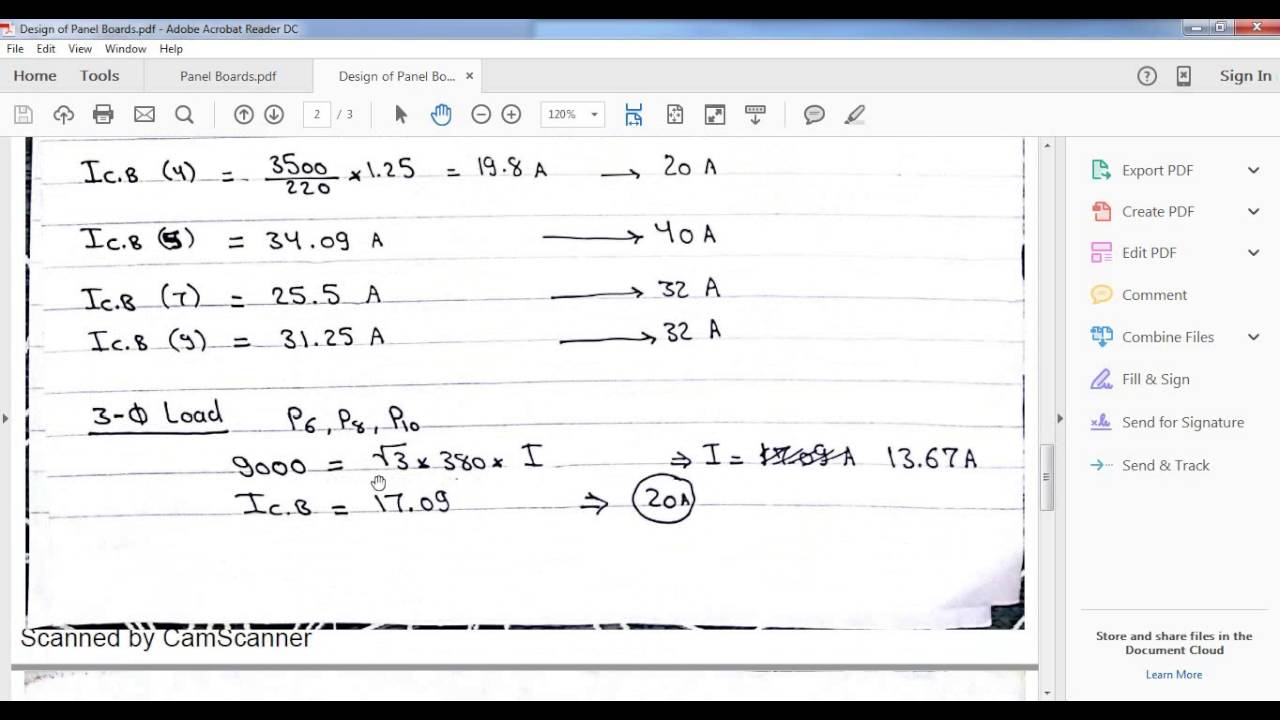 Design of Panel Boards.pdf - Adobe Acrobat Reader DC
File Edit View Window Help
Home Tools Panel Boards.pdf Design of Panel Bo... × Sign In
2 / 3 120%
I C.B (4) = 3500/220 × 1.25 = 19.8 A → 20 A
I C.B (5) = 34.09 A → 40 A
I C.B (7) = 25.5 A → 32 A
I C.B (9) = 31.25 A → 32 A
3-Φ Load P6, P8, P10
9000 = √3 × 380 × I ⇒ I = 17.09 A 13.67 A
I C.B = 17.09 ⇒ 20A
Scanned by CamScanner
Export PDF
Create PDF
Edit PDF
Comment
Combine Files
Fill & Sign
Send for Signature
Send & Track
Store and share files in the
Document Cloud
Learn More